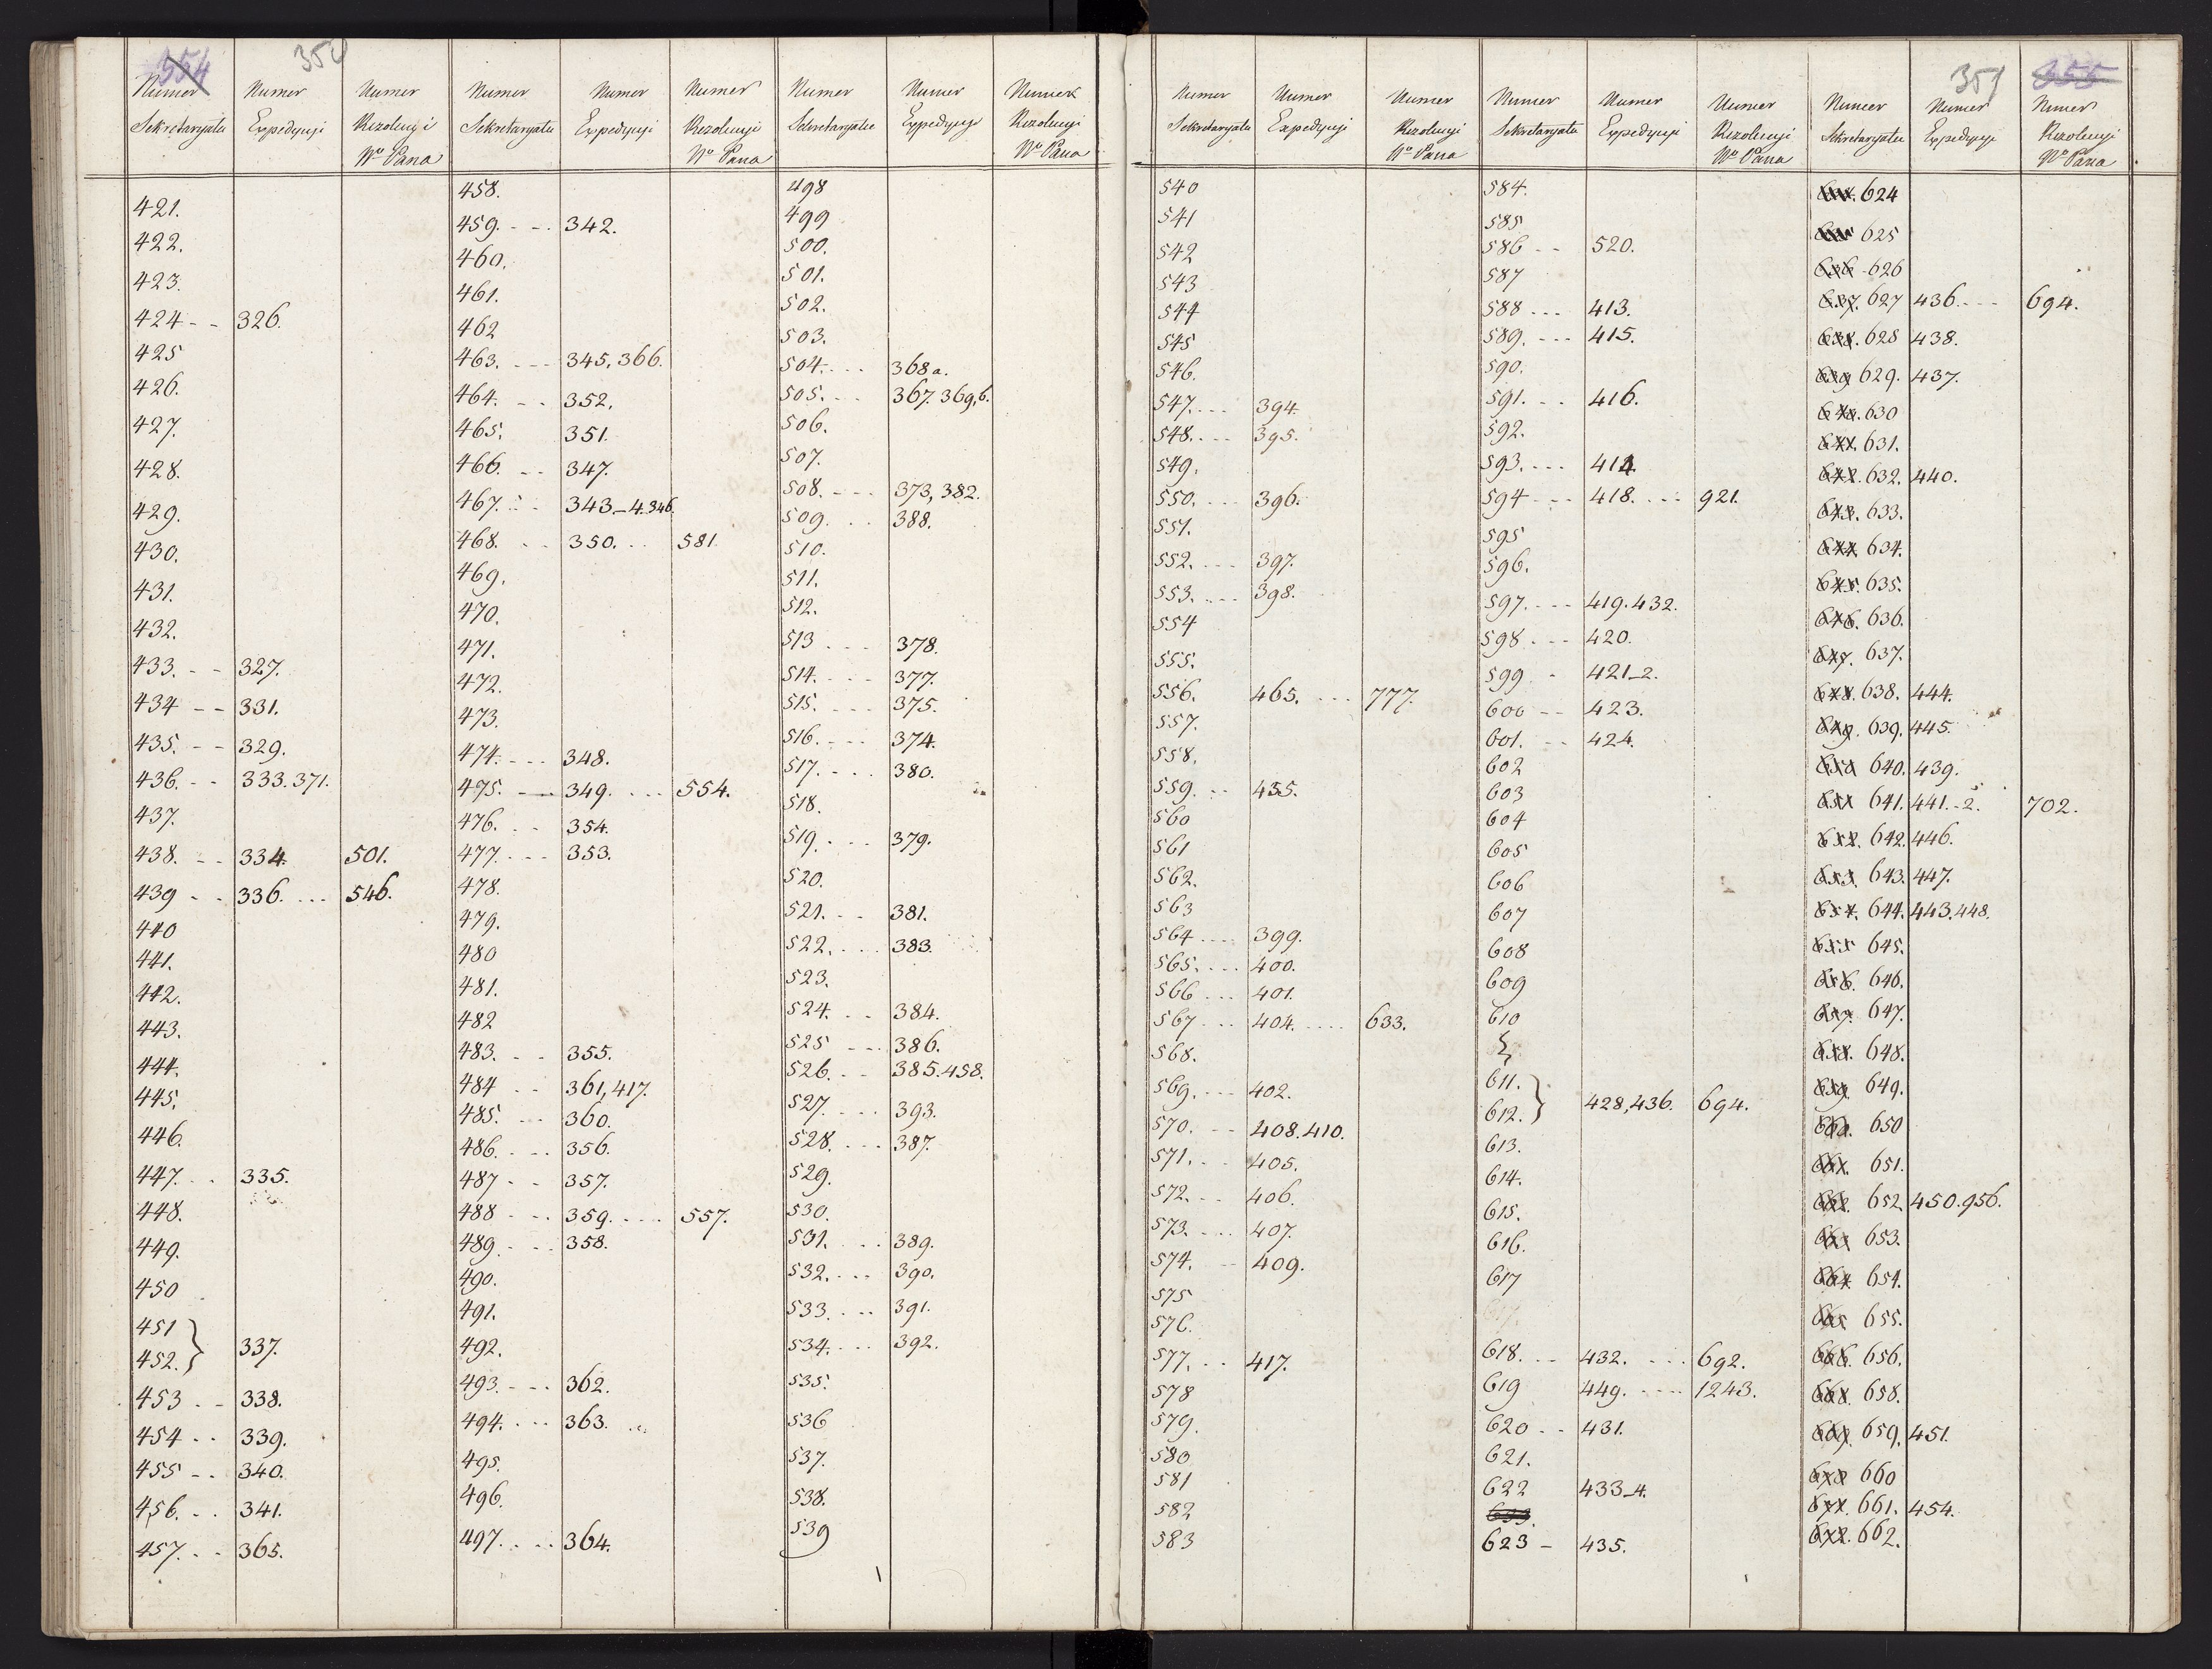 554 350
Numer Sekretaryatu Numer Expedycyi Numer Rezolucyi Wo Pana
421.
422.
423.
424 - - 326.
425
426.
427.
428.
429.
430.
431.
432.
433. - - 327.
434 - - 331.
435. - - 329.
436. - - 333.371.
437.
438. - - 334. 501.
439 - - 336. ... 546.
440
441.
442.
443.
444.
445.
446.
447. . . 335.
448.
449.
450
451 }
452. } 337.
453 . - 338.
454 . . 339.
455 - . 340.
456. . . 341.
457. . . 365.
Numer Sekretaryatu Numer Expedycyi Numer Rezolucyi Wo Pana
458.
459. - - . 342.
460.
461.
462
463. . - - 345, 366.
464. - - 352.
465. 351.
466. - - 347.
467. - - 343_4.346.
468. . . 350. . . 581.
469.
470.
471.
472.
473.
474. - - - 348.
475. - - 349. . . . 554.
476. . . 354.
477. - - - 353.
478.
479.
480
481.
482
483. - - 355.
484 - - 361, 417.
485. - - 360.
486. - . . 356.
487 - - 357.
488 - - . 359. . . . . 557.
489. - - . 358.
490.
491.
492.
493. - - . 362.
494. . . . 363.
495.
496.
497. . . . 364.
Numer Sekretaryatu Numer Expedycyi Numer Rezolucyi Wo Pana
498
499
500.
501.
502.
503.
504. . . . 368a.
505. . - - 367. 369,6.
506.
507.
508. - - - 373, 382.
509. . . 388.
510.
511.
512.
513 . . . 378.
514. - - - 377.
515. . - - 375.
516. - - - 374.
517. - - . 380.
518.
519. . . . 379.
520.
521. . - 381.
522. . . . 383.
523.
524. . . 384.
525 - - 386.
526. - - 385.458.
527. . . . 393.
528. . . . 387.
529.
530.
531. . . . 389.
532. . . . 390.
533. . . . 391.
534. . . . 392.
535.
536
537.
538.
539
351 355
Numer Sekretaryatu Numer Expedycyi Numer Rezolucyi Wo Pana
540
541
542
543
544
545
546.
547. . . . 394.
548. . . . 395.
549.
550. . . . 396.
551.
552. . . . 397.
553. . . . . 398.
554
555.
556. 465. . . . 777.
557.
558.
559. . . 455.
560
561
562.
563
564 . . . . 399.
565. . . . 400.
566 . . . 401.
567 . . . 404. . . . . 633.
568.
569. . . . 402.
570. - - 408.410.
571. . . . 405.
572. . . 406.
573. . . . 407.
574. - - 409.
575
576.
577. . . 417.
578
579.
580
581
582
583
Numer Sekretaryatu Numer Expedycyi Numer Rezolucyi Wo Pana
584.
585
586 - - 520.
587
588 . . . 413.
589. - - - 415.
590.
591. . . 416.
592.
593. . . . 414.
594 - - - 418. . . . 921.
595
596.
597. - - - 419.432.
598 . - - 420.
599 - 421_2.
600 - - 423.
601. - - 424.
602
603
604
605
606
607
608
609
610
611. }
612. } 428, 436. 694.
613.
614.
615.
616.
617
618. . . 432. . . . 692.
619 449. . . . . 1243.
620 . . 431.
621.
622 433_4.
623 - 435.
Numer Sekretaryatu Numer Expedycyi Numer Rezolucyi Wo Pana
624
625
626
627 436. . - - 694.
628 438.
629. 437.
630
631.
632. 440.
633.
634.
635.
636.
637.
638. 444.
639. 445.
640. 439.
641. 441.-2. 702.
642. 446.
643. 447.
644. 443.448.
645.
646.
647.
648.
649.
650
651.
652. 450.956.
653.
654.
655.
656.
658.
659. 451.
660
661. 454.
662.